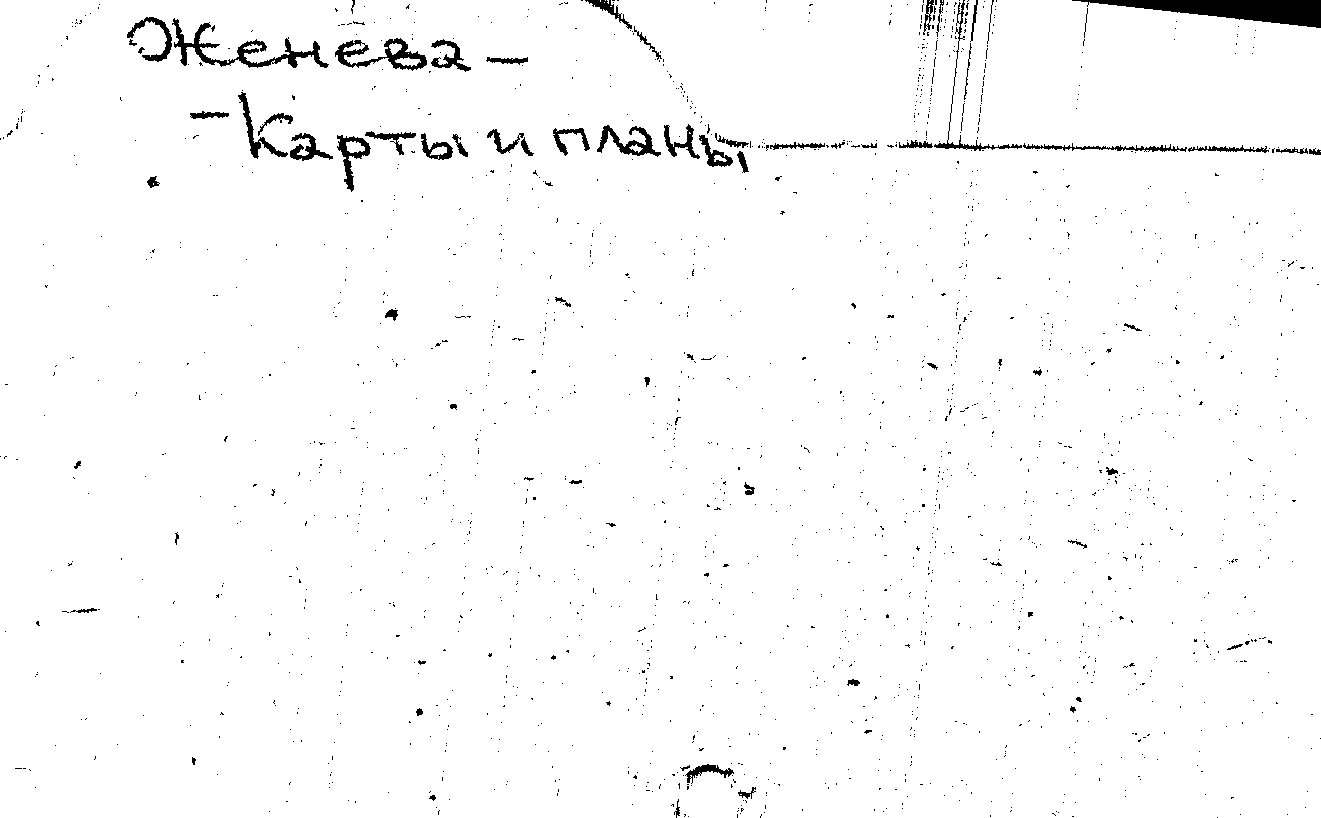 Женева –
– Карты и планы